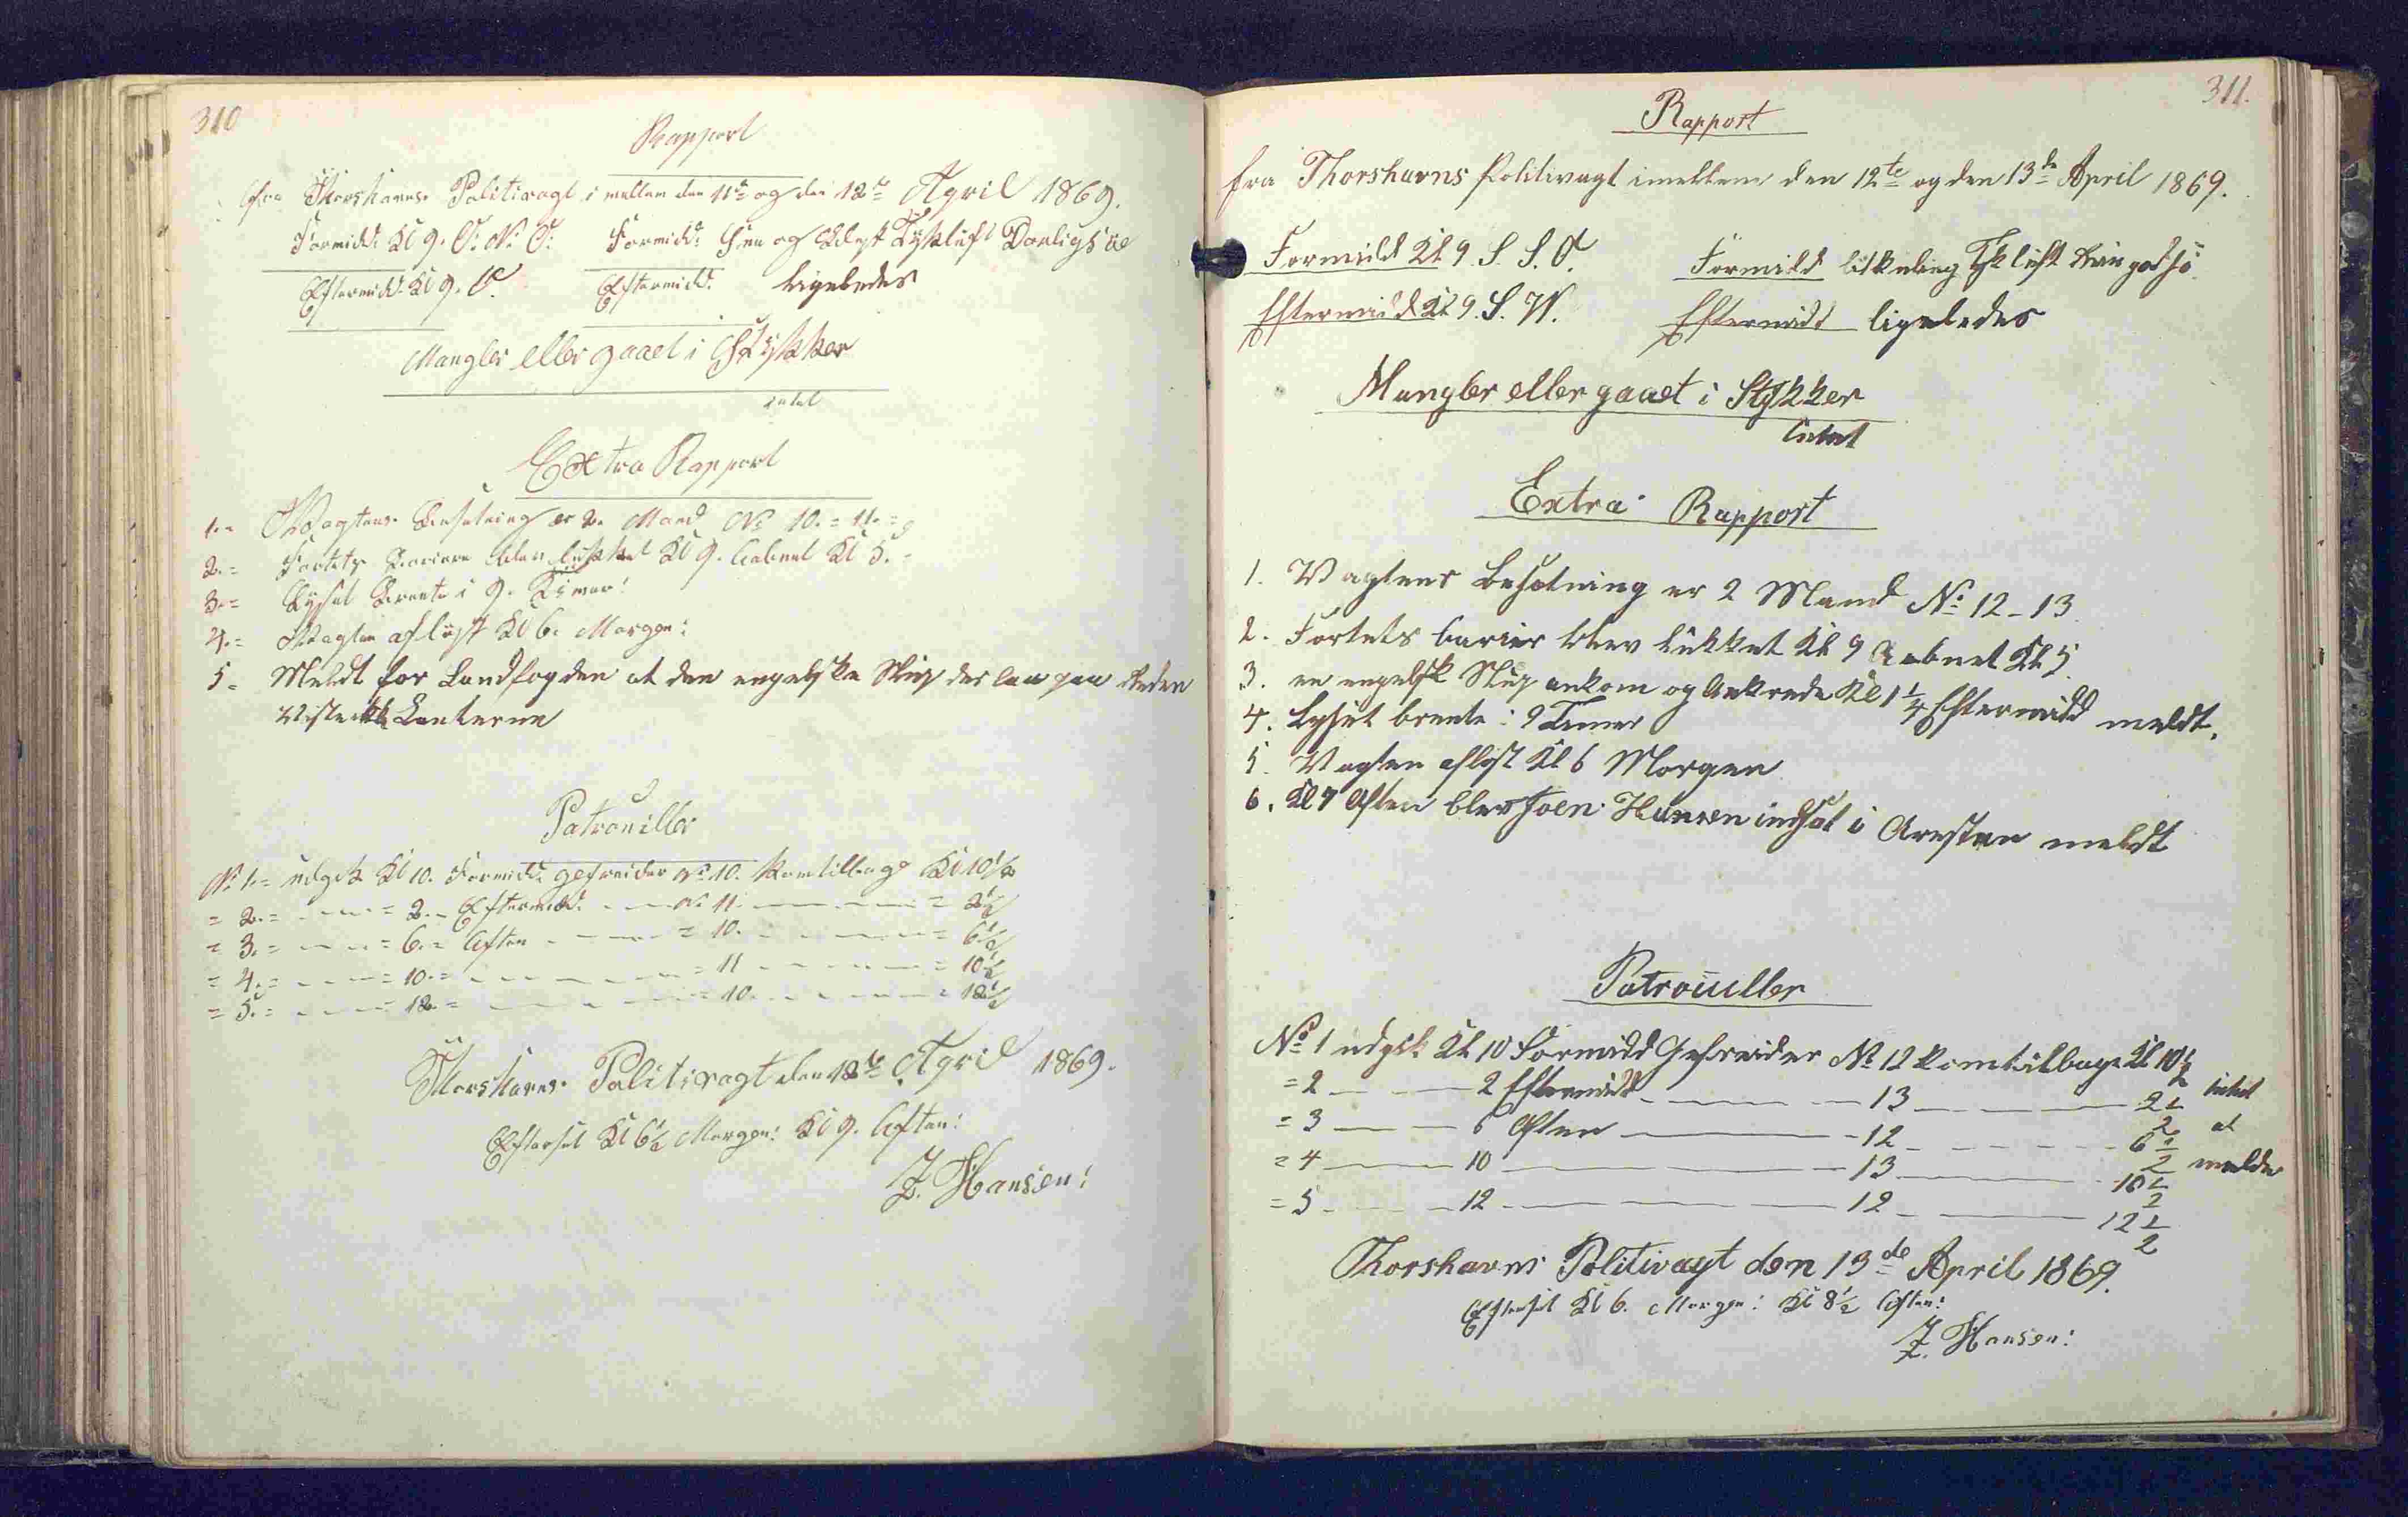 310
Rapport
fra Thorshavns Politivagt i mellem den 11te og den 12te April 1869.
Formidd: Kl 9. O: N: O: Formidd: Sne og Tyk luft Daarlig Söe
Eftermidd: Kl 9. O. Eftermidd: ligeledes
Mangler eller gaaet i Stykker
intet
Extra Rapport
1.= Vagtens Besætning er 2. Mand No 10.= 11.=
2.= Fortets Bariere blev lukket Kl 9. Aabnet Kl 5.=
3.= Lyset Brente i 9. Timer!
4.= Vagten aflöst Kl 6. Morgen:
5= Meldt for Landfogden at den engelske Slup der laa paa Reden
Viste ikke Lanterne
Patrouiller
No 1.= udgik Kl 10. Formidd: gefreider No 10. kom tilbage Kl 10 1/2
= 2.= - - - = 2.- Eftermidd. - - No 11. - - - = 2 1/2
= 3.= - - - = 6.= Aften - - - = 10. - - - = 6 1/2
= 4.= - - - = 10.= - - - = 11 - - - = 10 1/2
= 5.= - - - = 12.= - - - = 10. - - - = 12 1/2
Thorshavns Politivagt den 12te April 1869.
Efterset Kl 6 1/2 Morgen: Kl 9. Aften:
Z. Hansen:
311.
Rapport
fra Thorshavns Politivagt imellem den 12te og den 13de April 1869.
Formidd Kl 9. S. S. O. Formidd Tyk luft god sö
Eftermidd Kl 9. S. V. Eftermidd ligeledes
Mangler eller gaaet i Stykker
intet
Extra Rapport
1. Vagtens Besætning er 2 Mand No 12-13.
2. Fortets barier blev lukket Kl 9 Aabnet Kl 5.
3. en engelsk Slup ankom og Ankrede Kl 1 1/4 Eftermidd meldt.
4. Lyset brente i 9 Timer
5. Vagten aflöst Kl 6 Morgen
6. Kl 7 Aften blev Joen Hansen indsat i Aresten meldt
Patrouiller
No 1 udgik Kl 10 Formidd Gefreider No 12 kom tilbage Kl 10 1/2
= 2 - - 2 Eftermidd - - 13 - - 2 1/2 intet
= 3 - - 6 Aften - - 12 - - 6 1/2 at
= 4 - - 10 - - 13 - - 10 1/2 melde
= 5 - - 12 - - 12 - - 12 1/2
Thorshavns Politivagt den 13de April 1869.
Efterset Kl 6. Morgen: Kl 8 1/2 Aften:
Z. Hansen: